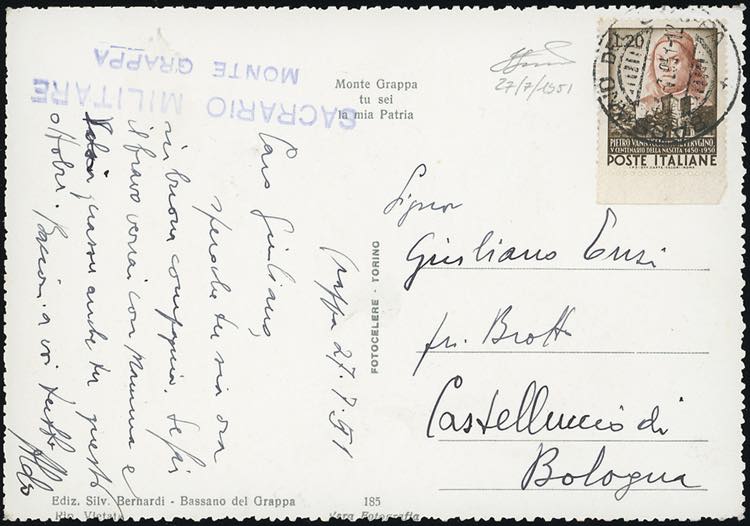 SACRARIO MILITARE
MONTE GRAPPA
Monte Grappa
tu sei
la mia Patria
27/7/1951
L.20
PIETRO VANNUCCI DETTO IL PERUGINO
V CENTENARIO DELLA NASCITA 1450-1950
POSTE ITALIANE
Grappa 27.7.51
Caro Giuliano,
spero che tu sia ora
in buona compagnia. Se fai
il bravo verrai con mamma e
quassù anche tu questo
ottobre. Bacioni a voi tutti
Aldo
FOTOCELERE - TORINO
Signor
Giuliano
fr. Brotto
Castelluccio di
Bologna
Ediz. Silv. Bernardi - Bassano del Grappa
185
Rip. Vietata
Vera Fotografia